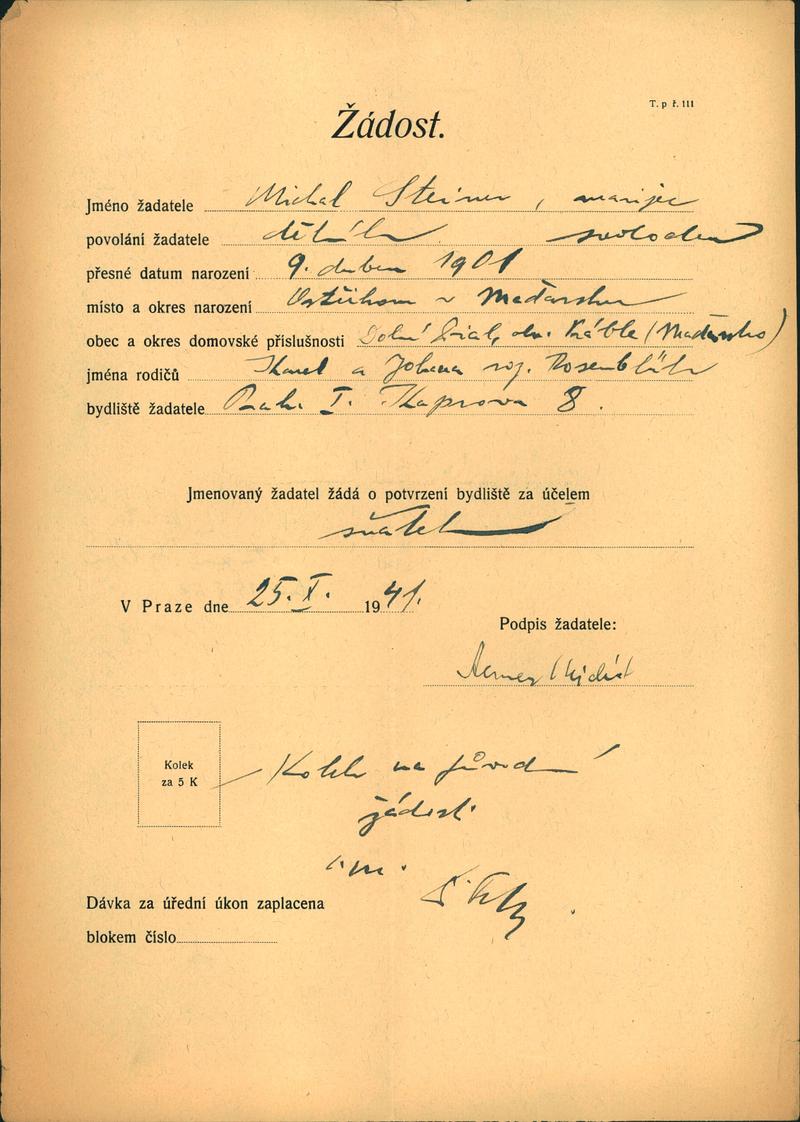 T. p ř. 111
Žádost.
Jméno žadatele Michal Steiner,
povolání žadatele dělník svoboden
přesné datum narození 9. duben 1901
místo a okres narození Ostřihom v Maďarsku
obec a okres domovské příslušnosti Dolní (Maďarsko)
jména rodičů Karel a Johana roz. Rosenblüh
bydliště žadatele Praha I. Kaprova 8.
Jmenovaný žadatel žádá o potvrzení bydliště za účelem
sňatku
V Praze dne 25. X. 1941.
Podpis žadatele:
Kolek
za 5 K
Kolek na původní
žádosti
Dávka za úřední úkon zaplacena
blokem číslo